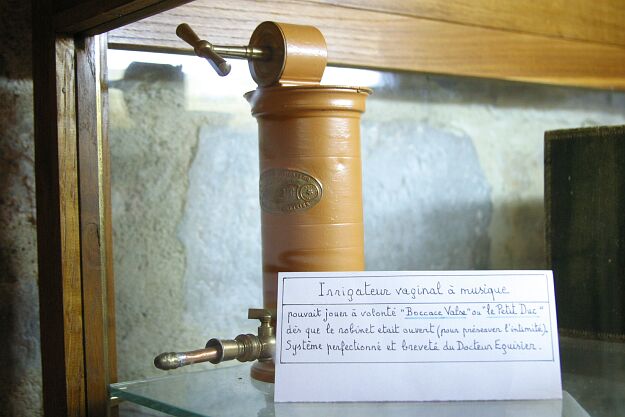 Irrigateur vaginal à musique
pouvait jouer à volonté "Boccace Valse" ou "le Petit Duc"
dès que le robinet etait ouvert (pour préserver l'intimité).
Système perfectionné et breveté du Docteur Eguisier.